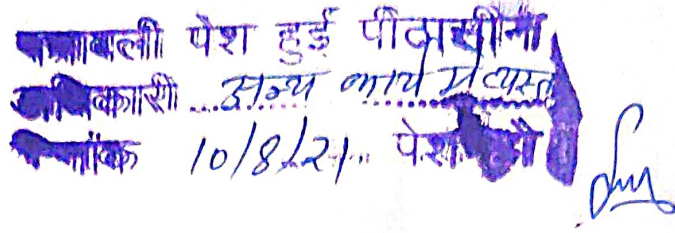 पत्रावली पेश हुई पीठासीन
अधिकारी अन्य कार्य में व्यस्त
दिनांक 10/8/21 पेश हो